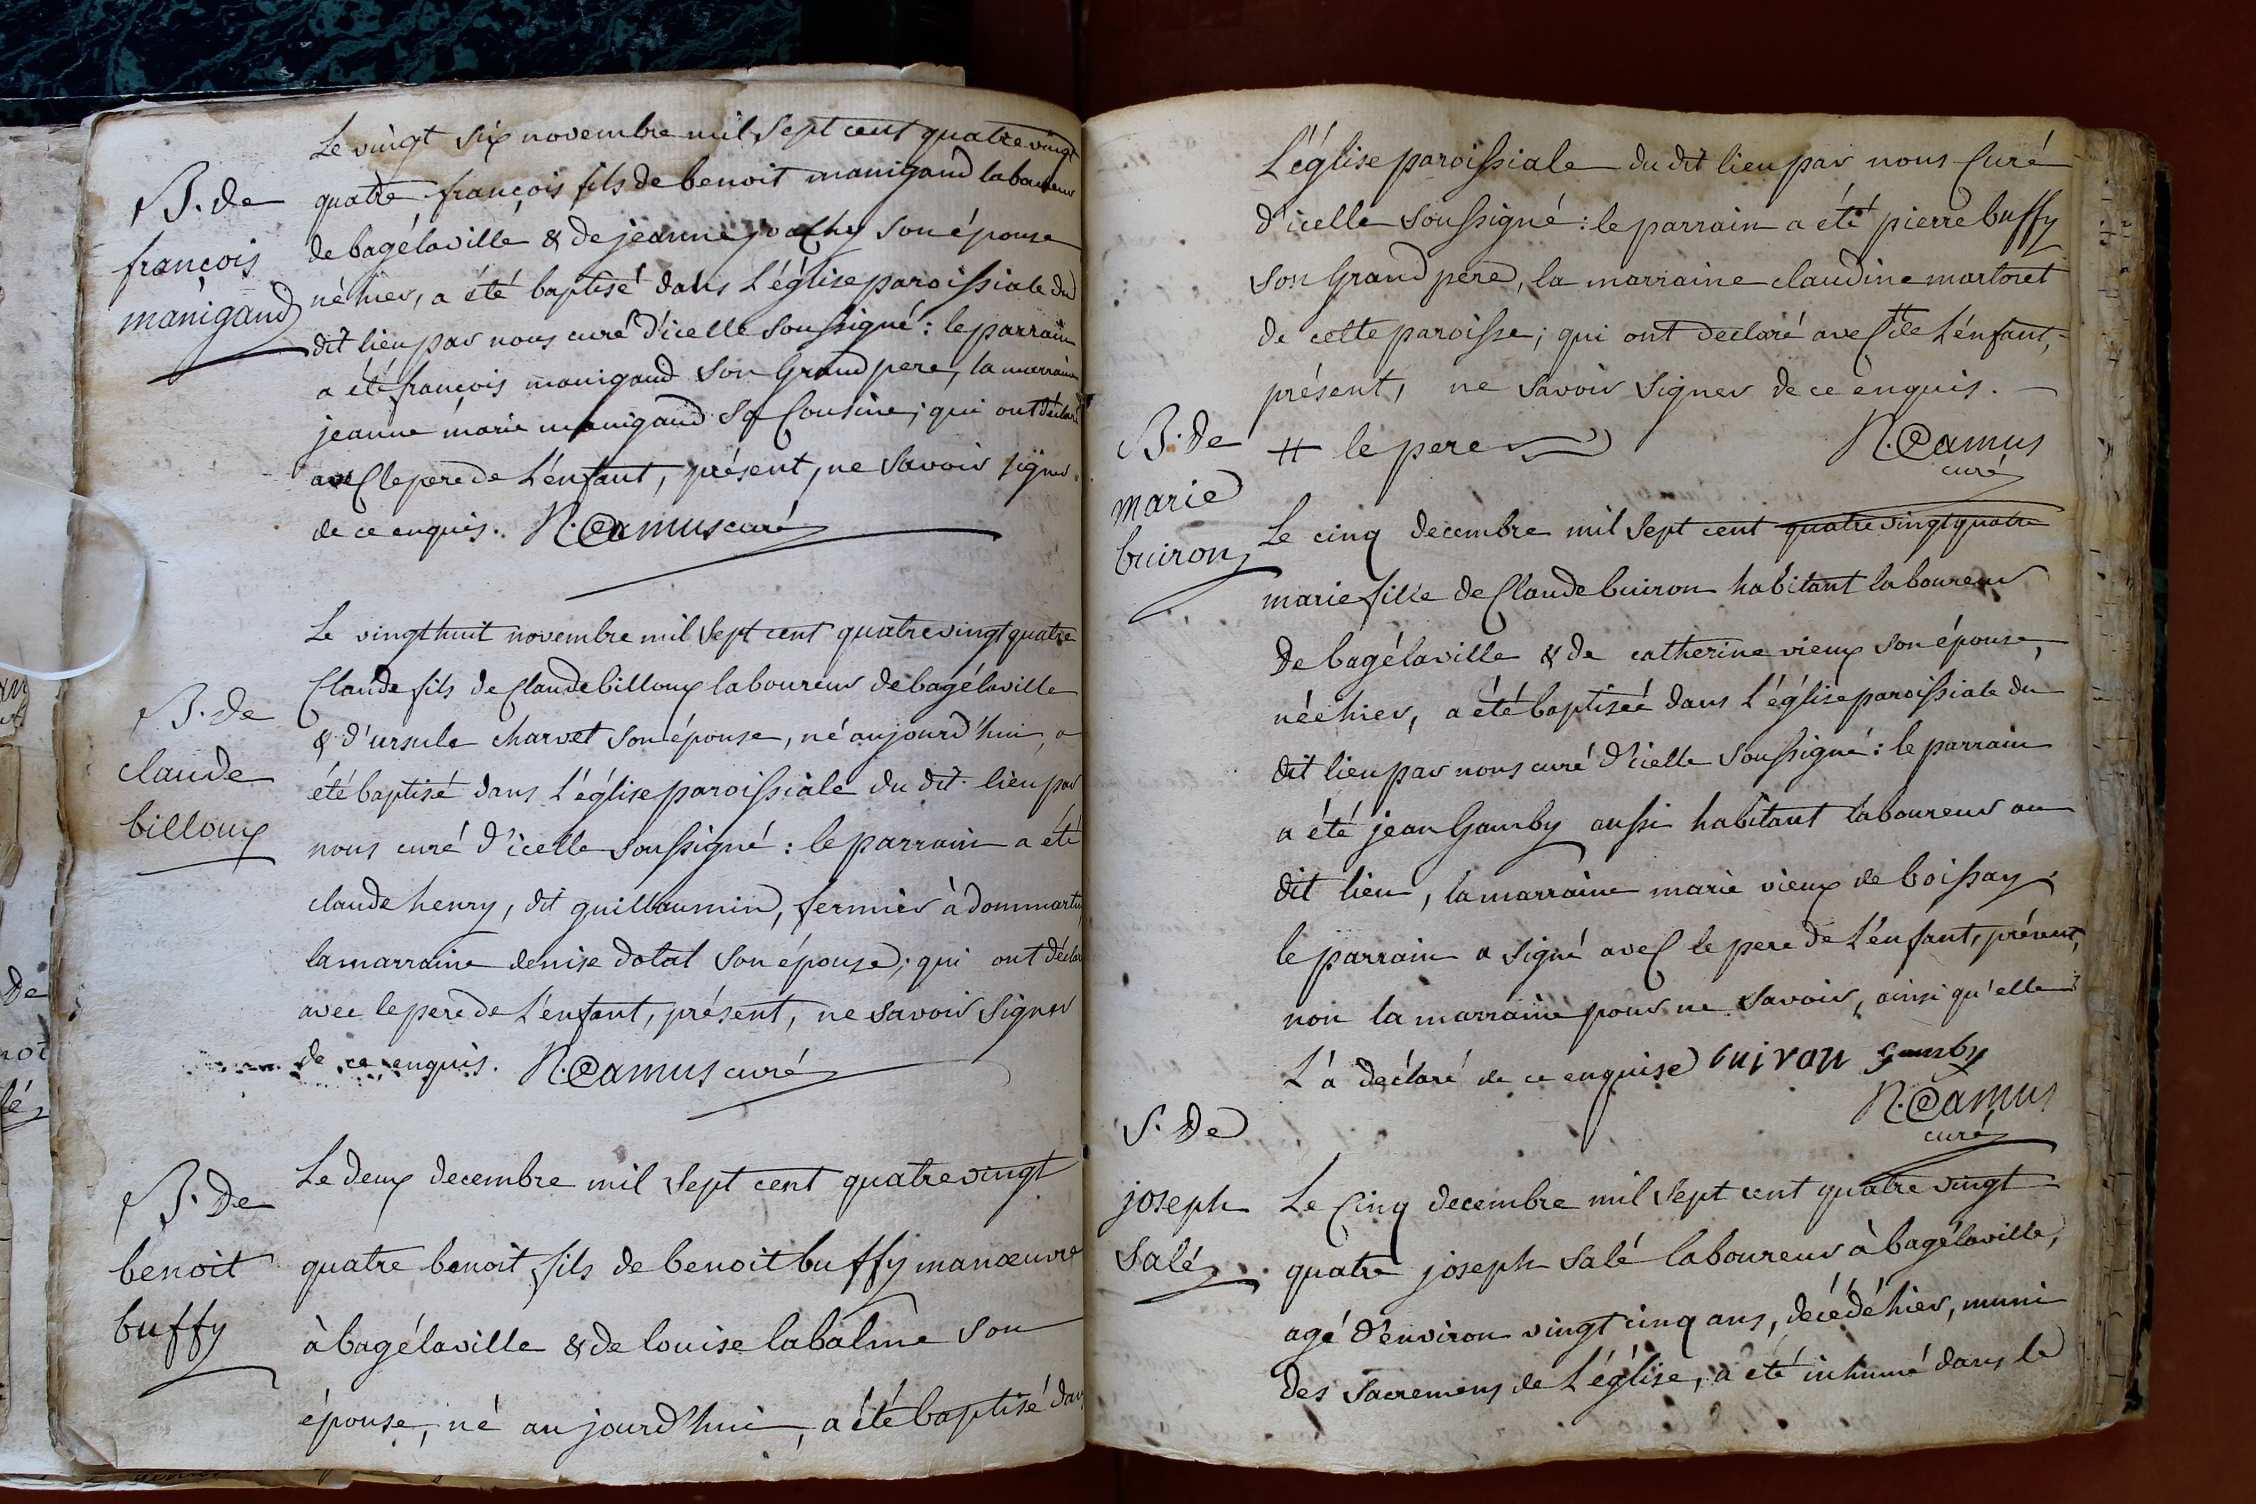 Le vingt six novembre mil sept cent quatre vingt
B. de
quatre françois fils de benoit manigand laboureur
de bagélaville & de jeanne joachy son épouse
françois
né hier, a été baptisé dans L'église paroissiale du
manigand
dit lieu par nous curé d'icelle soussigné : le parrain
a été françois manigand son Grand pere, la marraine
jeanne marie manigand sa Cousine ; qui ont déclaré
avec le pere de L'enfant, présent, ne savoir signer
de ce enquis. N. Camus curé
Le vingt huit novembre mil sept cent quatre vingt quatre
Claude fils de Claude billoux laboureur de bagélaville
B. de
& d'ursule charvet son épouse, né aujourd'hui, a
claude
été baptisé dans L'église paroissiale du dit lieu par
billoux
nous curé d'icelle soussigné : le parrain a été
claude henry, dit guillaumin, fermier à dommartin,
la marraine denise dotal son épouse ; qui ont déclaré
avec le pere de L'enfant, présent, ne savoir signer
de ce enquis. N. Camus curé
Le deux decembre mil sept cent quatre vingt
B. De
benoit
quatre benoit fils de benoit buffy manœuvre
buffy
à bagélaville & de louise labalme son
épouse, né aujourd'hui, a été baptisé dans
L'église paroissiale du dit lieu par nous Curé
d'icelle soussigné : le parrain a été pierre buffy
son Grand pere, la marraine claudine martoret
de cette paroisse ; qui ont declaré avec # de L'enfant,
présent, ne savoir signer de ce enquis.
B. de
# le pere
N. Camus
curé
marie
buiron
Le cinq decembre mil sept cent quatre vingt quatre
marie fille de Claude buiron habitant laboureur
de bagélaville & de catherine vieux son épouse,
née hier, a été baptisée dans L'église paroissiale du
dit lieu par nous curé d'icelle soussigné : le parrain
a été jean Gamby aussi habitant laboureur au
dit lieu, la marraine marie vieux de boissay ;
le parrain a signé avec le pere de L'enfant, présent,
non la marraine pour ne savoir, ainsi qu'elle
L'a declaré de ce enquise buiron gamby
N. Camus
curé
S. De
joseph
Salé
Le Cinq decembre mil sept cent quatre vingt
quatre joseph salé laboureur à bagélaville,
agé d'environ vingt cinq ans, décédé hier, muni
des sacremens de L'église, a été inhumé dans le